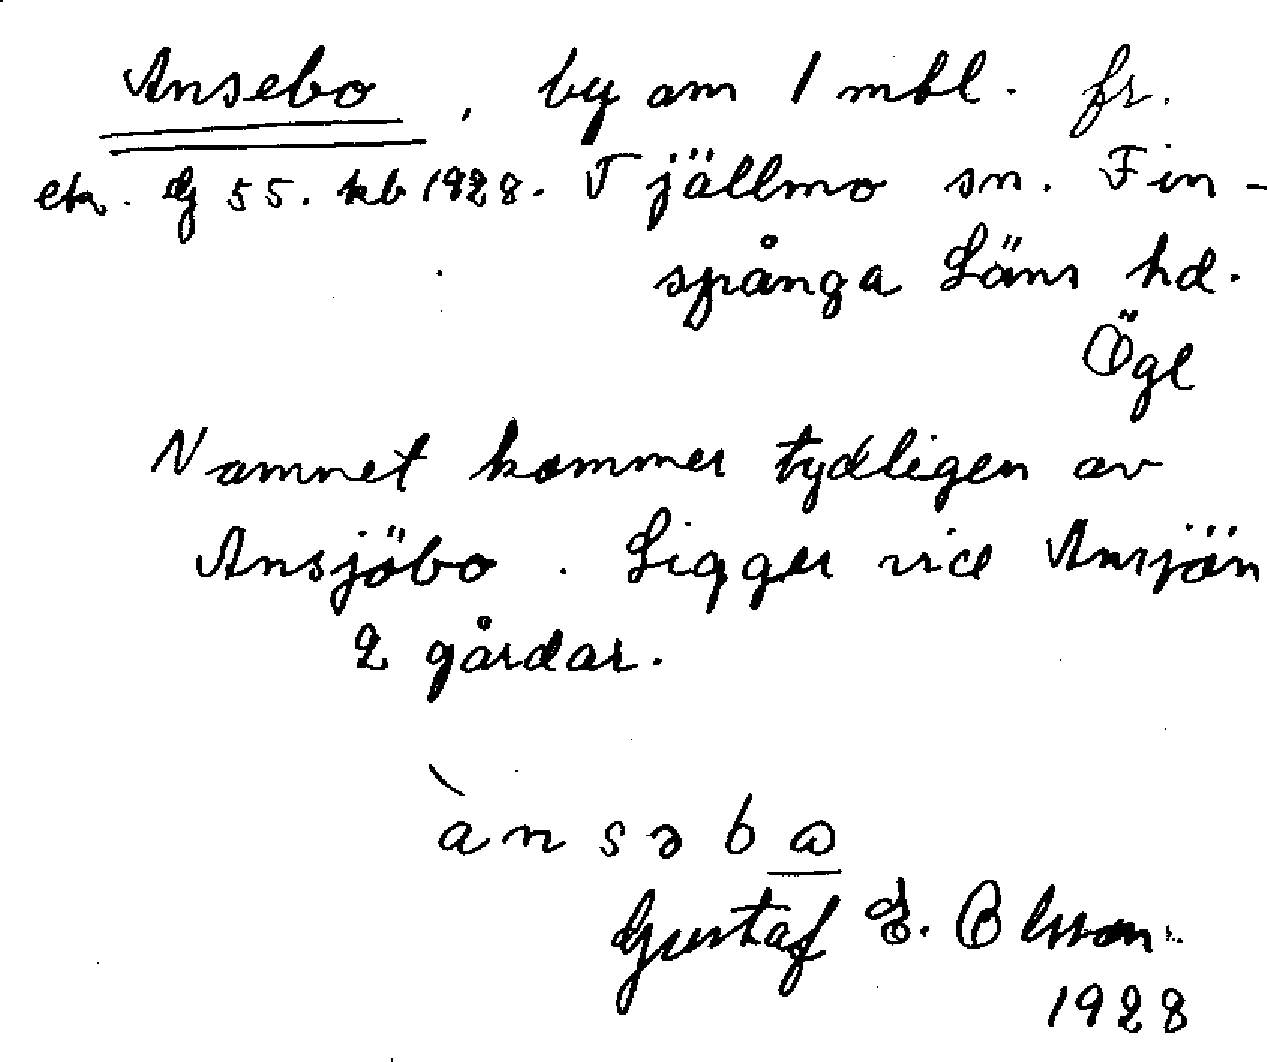 Ansebo, by om 1 mtl. fr.
ek. G 55. kb 1928. Tjällmo sn. Fin-
spånga Läns hd.
Ögl
Namnet kommer tydligen av
Ansjöbo. Ligger vid Ansjön
2 gårdar.
ànsəbɷ
Gustaf E. Olsson.
1928